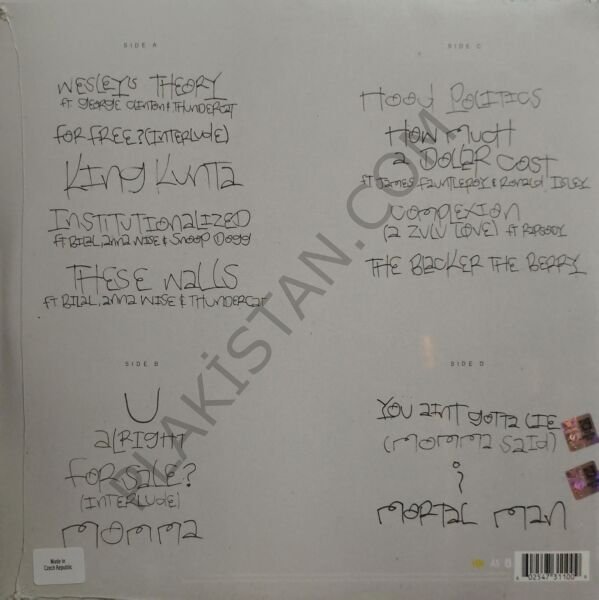 SIDE A
WESLEY'S THEORY
ft GEORGE CLINTON & THUNDERCAT
FOR FREE? (INTERLUDE)
KING KUNTA
INSTITUTIONALIZED
ft BILAL, anna WISE & SNOOP DOGG
THESE WALLS
ft BILAL, anna WISE & THUNDERCAT
SIDE B
U
aLRIGHT
FOR SALE?
(INTERLUDE)
MOMMA
SIDE C
HOOD POLITICS
HOW MUCH
a DOLLAR COST
ft JAMES FAUNTLEROY & RONALD ISLEY
COMPLEXION
(a ZULU LOVE) ft RAPSODY
THE BLACKER THE BERRY
SIDE D
YOU AINT GOTTA LIE
(MOMMA SAID)
i
MORTAL MAN
Made in
Czech Republic
6 02547 31100 9
PLAKİSTAN.COM